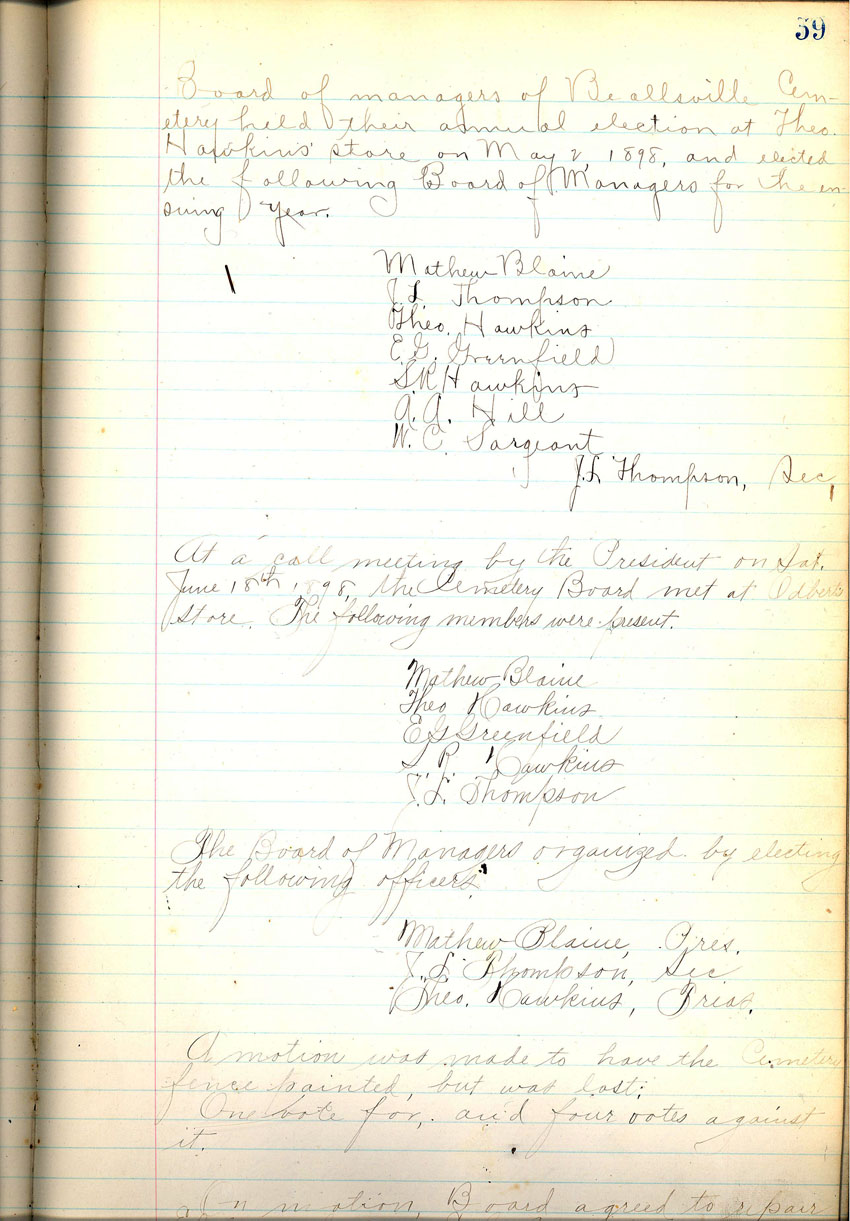 59
Board of managers of Beallsville Cem-
etery held their annual election at Theo.
Hawkins' store on May 2, 1898, and elected
the following Board of Managers for the en-
suing year.
Mathew Blaine
J. L. Thompson
Theo. Hawkins
E. G. Greenfield
S. R Hawkins
A. A. Hill
W. C. Sargeant
J. L. Thompson, Sec,
At a call meeting by the President on Sat.
June 18th, 1898, the Cemetery Board met at Odbert
store. The following members were present.
Mathew Blaine
Theo Hawkins
E G Greenfield
S. R. Hawkins
J. L. Thompson
The Board of Managers organized by electing
the following officers
Mathew Blaine, Pres.
J. L. Thompson, Sec
Theo. Hawkins, Treas.
A motion was made to have the Cemetery
fence painted, but was lost;
One vote for, and four votes against
it.
On motion, Board agreed to repair